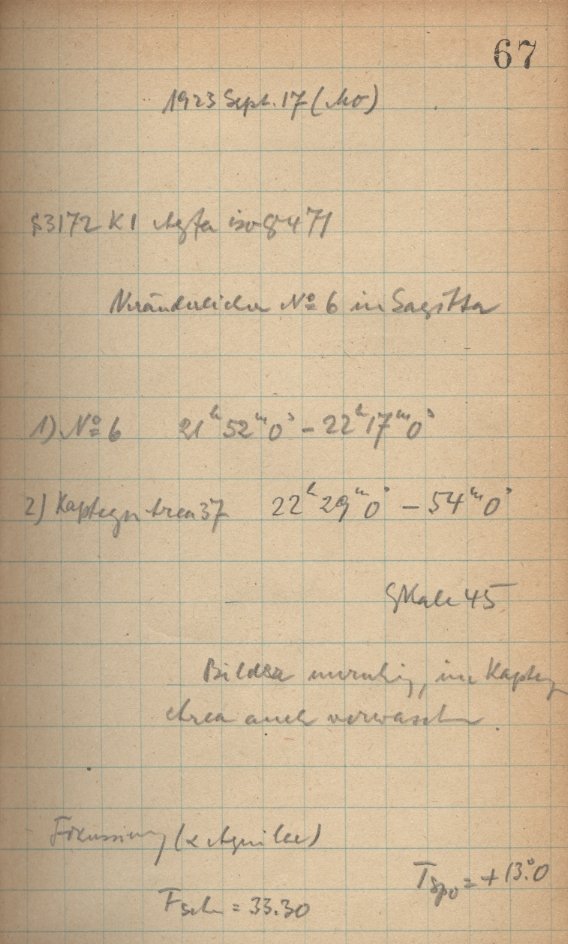 67
1923 Sept. 17 (Mo)
S3172 K1 Agfa iso 8471
Veränderlicher No 6 in Sagitta
1) No 6 21h 52m 0s - 22h 17m 0s
2) Kapteyn Area 37 22h 29m 0s - 54m 0s
Skale 45
Bilder unruhig, in Kapteyn
Area auch verwaschen
Fokussierung (α Aquilae)
Tspo = + 13.°0
Fsch = 33.30